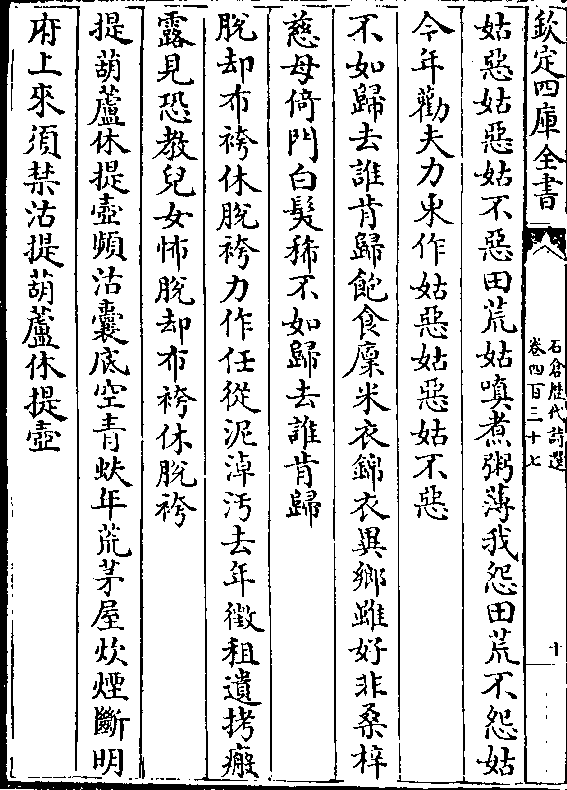 欽定四庫全書
石倉歴代詩選
卷四百三十七
十
姑惡姑惡姑不惡田荒姑嗔煮粥薄我怨田荒不怨姑
今年勸夫力東作姑惡姑惡姑不惡
不如歸去誰肯歸飽食廩米衣錦衣異鄉雖好非桑梓
慈母倚門白髮稀不如歸去誰肯歸
脫却布袴休脫袴力作任從泥淖汚去年徵租遺拷瘢
露見恐教兒女怖脫却布袴休脫袴
提葫蘆休提壺頻沽囊底空青蚨年荒茅屋炊煙斷明
府上來須禁沽提葫蘆休提壺